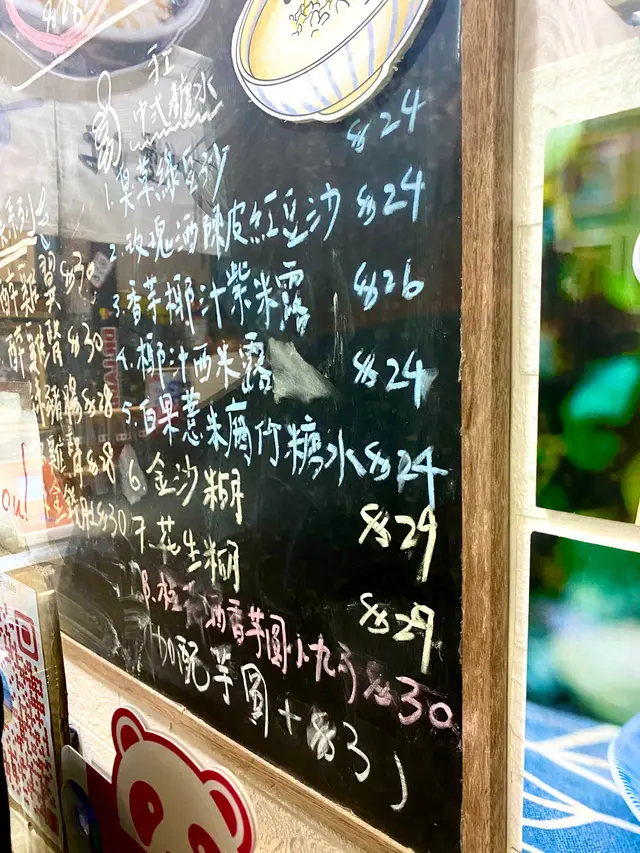 中式糖水
1. 臭草綠豆沙 $24
2. 玫瑰酒陳皮紅豆沙 $24
3. 香芋椰汁紫米露 $26
4. 椰汁西米露 $24
5. 白果薏米腐竹糖水 $24
6. 金沙糊 $29
7. 花生糊 $29
8. 桂花酒香芋圓小丸子 $30
(加配芋圓 + $3)
醉雞翼 $30
醉雞腎 $30
$28
雞腎 $28
金錢肚 $30
ou!